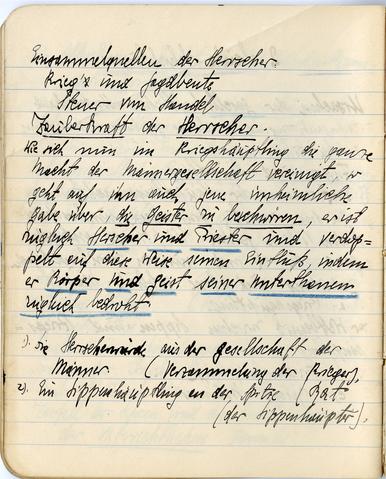 Einsammelquellen der Herrscher.
Krieg's und Jagdbeute
Steuer von Handel
Zauberkraft der Herrscher.
Wie sich nun im Kriegshäuptling die ganze
Macht der Männergesellschaft vereinigt, so
geht auf ihn auch jene unheimliche
gabe über, die geister zu beschwören, er ist
zugleich Herscher und Priester und verdop-
pelt auf diese Weise seinen Einfluß, indem
er Körper und geist seiner Unterthanen
zugleich bedroht
1). Die Herrscherwürde aus der gesellschaft der
Männer (Versammlung der Krieger),
2). Ein Sippenhäuptling an der Spitze (Rat
(der Sippenhäupter).